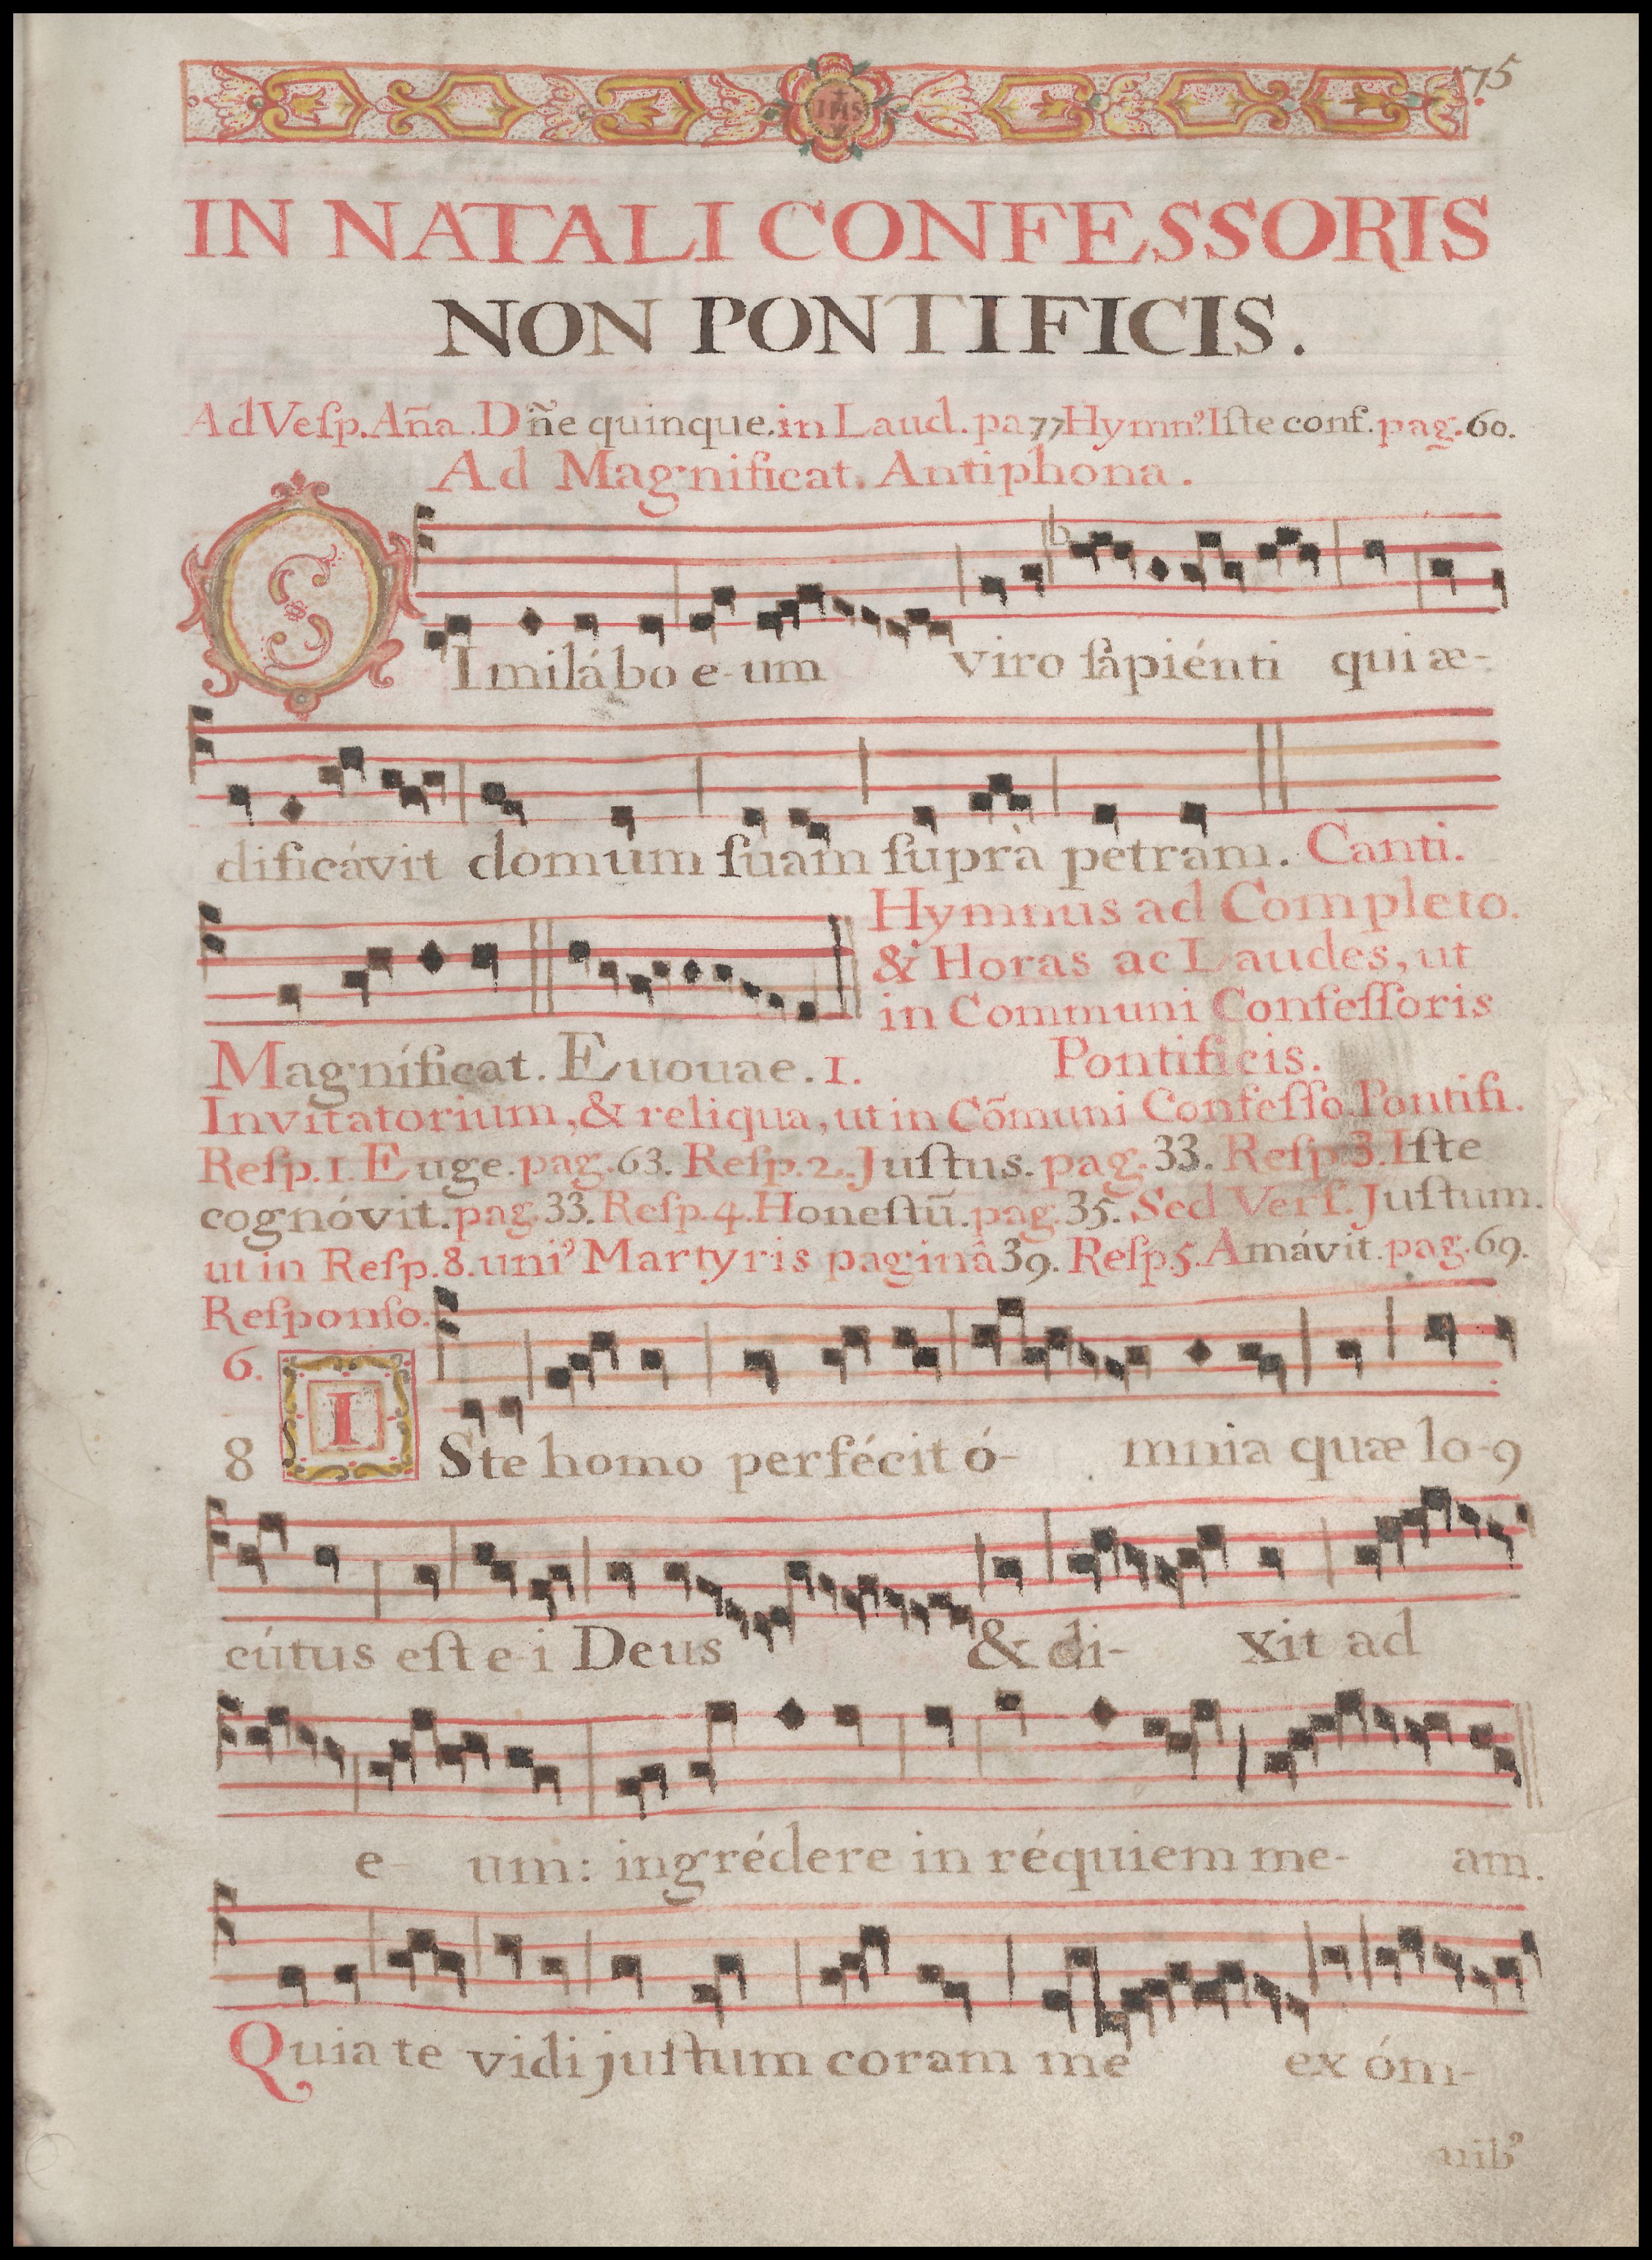 75
IHS
IN NATALI CONFESSORIS
NON PONTIFICIS.
Ad Veſp. Aña. Dñe quinque. in Laud. pa 77 Hymn.⁹ Iſte conf. pag. 60.
Ad Magnificat. Antiphona.
SImilábo e-um viro ſapiénti qui æ-
dificávit domum ſuam ſuprà petram. Canti.
Hymnus ad Completo.
& Horas ac Laudes, ut
in Communi Confeſſoris
Magníficat. Euouae. 1. Pontificis.
Invitatorium, & reliqua, ut in Cõmuni Confeſſo. Pontifi.
Reſp. 1. Euge. pag. 63. Reſp. 2. Juſtus. pag. 33. Reſp. 3. Iſte
cognóvit. pag. 33. Reſp. 4. Honeſtũ. pag. 35. Sed Verſ. Juſtum.
ut in Reſp. 8. uni⁹ Martyris paginâ 39. Reſp. 5. Amávit. pag. 69.
Reſponſo.
6.
8 ISte homo perfécit ó- mnia quæ lo-9
cútus eſt e-i Deus & di- xit ad
e- um: ingrédere in réquiem me- am.
Quia te vidi juſtum coram me ex óm-
nib⁹